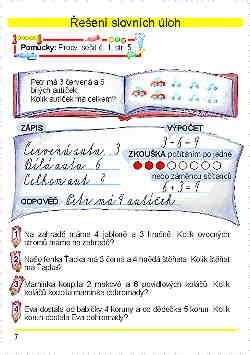 Řešení slovních úloh
Pomůcky: Prac. sešit č. 1, str. 5
Petr má 3 červená a 6
bílých autíček.
Kolik autíček má celkem?
ZÁPIS
VÝPOČET
Červená auta . 3
3 + 6 = 9
ZKOUŠKA počítáním po jedné
Bílá auta . 6
Celkem aut ?
nebo záměnou sčítanců
6 + 3 = 9
ODPOVĚĎ Petr má 9 autíček
1 Na zahradě máme 4 jabloně a 3 hrušně. Kolik ovocných
stromů máme na zahradě?
2 Naše fenka Ťapka má 3 černá a 4 hnědá štěňata. Kolik štěňat
má Ťapka?
3 Maminka koupila 2 makové a 6 povidlových koláčů. Kolik
koláčů koupila maminka dohromady?
4 Eva dostala od babičky 4 koruny a od dědečka 5 korun. Kolik
korun dostala Eva dohromady?
7